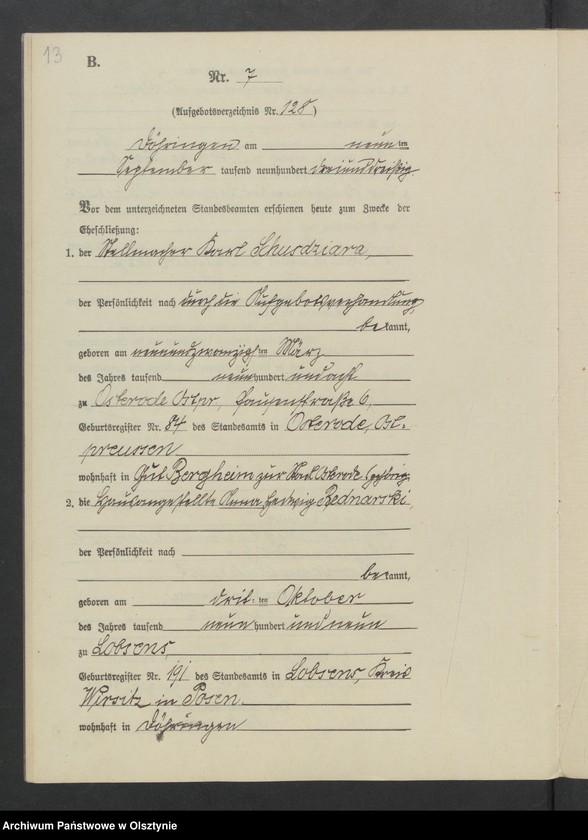 13
B.
Nr. 7
(Aufgebotsverzeichnis Nr. 128)
Döhringen am neunten
September tausend neunhundert dreiunddreißig.
Vor dem unterzeichneten Standesbeamten erschienen heute zum Zwecke der
Eheschließung:
1. der Stellmacher Karl Schusdziara,
der Persönlichkeit nach durch die Aufgebotsverhandlung
bekannt,
geboren am neunundzwanzigsten März
des Jahres tausend neunhundert undacht
zu Osterode Ostpr, straße 6,
Geburtsregister Nr. 84 des Standesamts in Osterode, Ost-
preussen
wohnhaft in Gut Bergheim zur Stadt Osterode gehörig
2. die Hausangestellte Anna Hedwig Bednarski,
der Persönlichkeit nach
bekannt,
geboren am dritten Oktober
des Jahres tausend neunhundert undneun
zu Lobsens,
Geburtsregister Nr. 191 des Standesamts in Lobsens, Kreis
Wirsitz in Posen.
wohnhaft in Döhringen
Archiwum Państwowe w Olsztynie